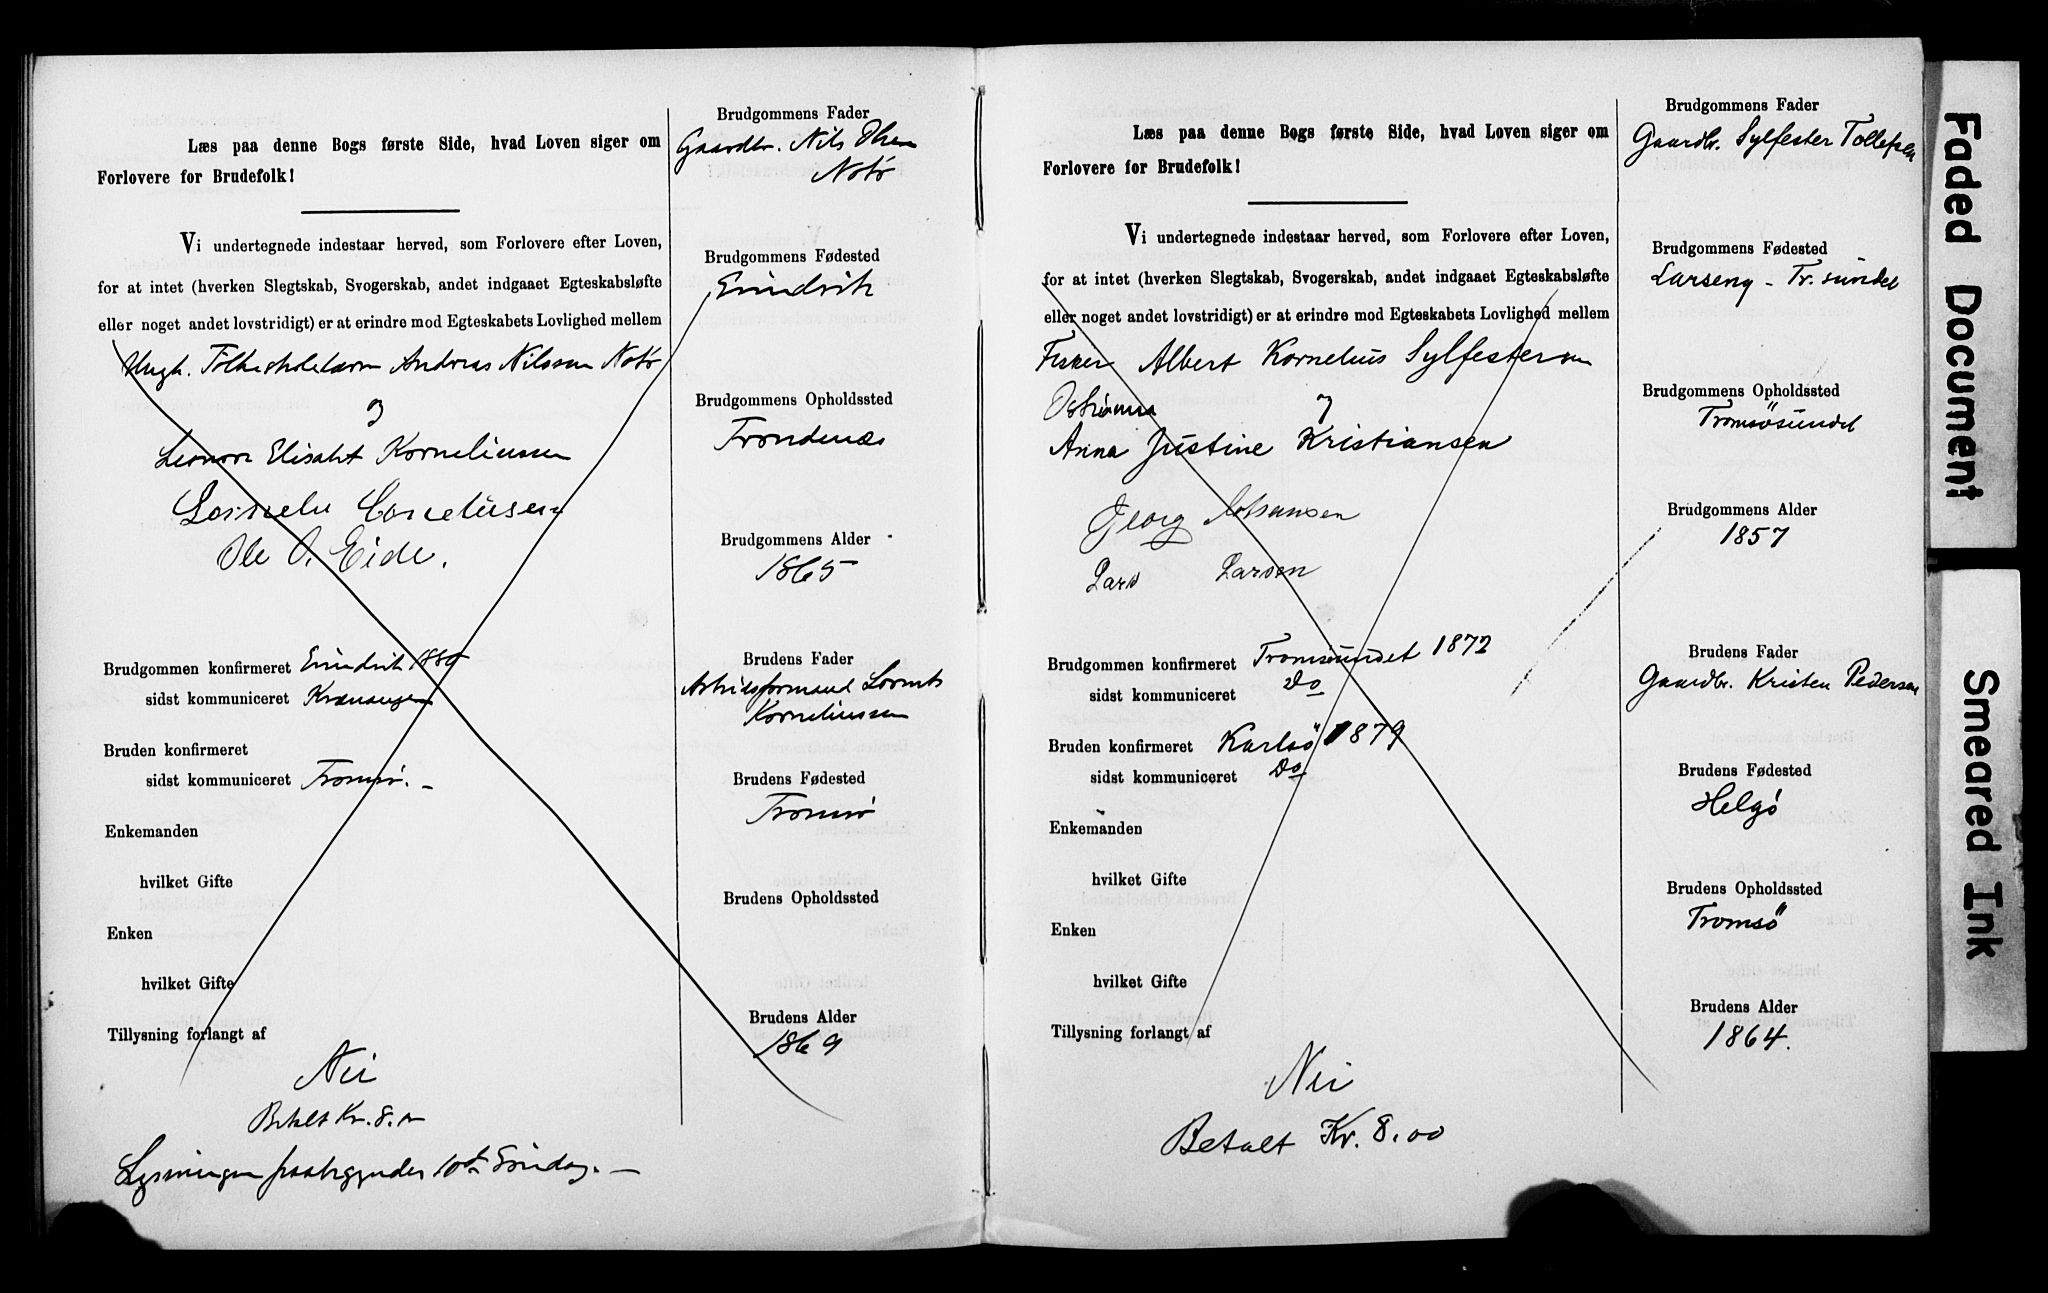 Læs paa denne Bogs første Side, hvad Loven siger om
Forlovere for Brudefolk!
Vi undertegnede indestaar herved, som Forlovere efter Loven,
for at intet (hverken Slegtskab, Svogerskab, andet indgaaet Egteskabsløfte
eller noget andet lovstridigt) er at erindre mod Egteskabets Lovlighed mellem
Ungk. Folkeskolelærer Andreas Nilssen Notø
og
Leonore Elisabet Korneliussen
Corneliussen
Ole O. Eide.
Brudgommen konfirmeret 1880
sidst kommuniceret Kvænangen
Bruden konfirmeret
sidst kommuniceret Tromsø. –
Enkemanden
hvilket Gifte
Enken
hvilket Gifte
Tillysning forlangt af
Nei
Betalt Kr. 8.
Lysningen paabegyndes 10de Søndag. –
Brudgommens Fader
Gaardbr. Nils Olsen
Notø
Brudgommens Fødested
Brudgommens Opholdssted
Trondenæs
Brudgommens Alder
1865
Brudens Fader
Arbeidsformand Lorents
Korneliussen
Brudens Fødested
Tromsø
Brudens Opholdssted
Brudens Alder
1869
Læs paa denne Bogs første Side, hvad Loven siger om
Forlovere for Brudefolk!
Vi undertegnede indestaar herved, som Forlovere efter Loven,
for at intet (hverken Slegtskab, Svogerskab, andet indgaaet Egteskabsløfte
eller noget andet lovstridigt) er at erindre mod Egteskabets Lovlighed mellem
Fisker Albert Kornelius Sylfestersen
og
Anna Justine Kristiansen
Georg Johansen
Lars Larsen
Brudgommen konfirmeret Tromsøsundet 1872
sidst kommuniceret Do
Bruden konfirmeret Karlsö 1879
sidst kommuniceret Do
Enkemanden
hvilket Gifte
Enken
hvilket Gifte
Tillysning forlangt af
Nei
Betalt Kr. 8.00
Brudgommens Fader
Gaardbr. Sylfester Tollefsen
Brudgommens Fødested
Larseng - Tr. sundet
Brudgommens Opholdssted
Tromsösundet
Brudgommens Alder
1857
Brudens Fader
Gaardbr. Kristen Pedersen
Brudens Fødested
Helgö
Brudens Opholdssted
Tromsö
Brudens Alder
1864.
Faded Document
Smeared Ink